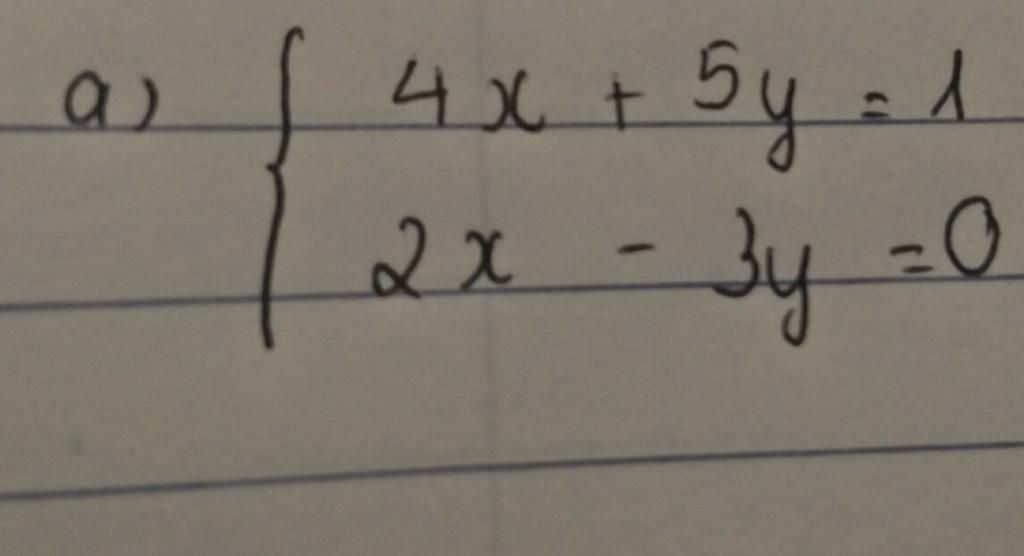 a) { 4x + 5y = 1
2x - 3y = 0